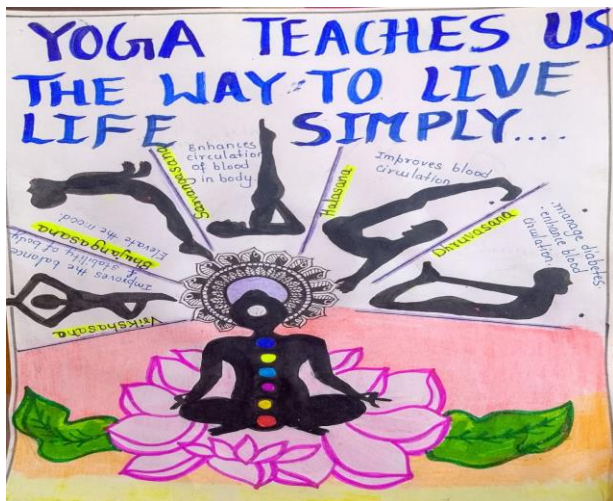 YOGA TEACHES US
THE WAY TO LIVE
LIFE SIMPLY....
Enhances
circulation
of blood
in body.
Sarvangasana
Halasana
Improves blood
circulation
Dhruvasana
. manage diabetes
. enhance blood
cirulation.
Elevate the mood
Bhujangasana
Improves the balance
& stability of body
Vrikshasana